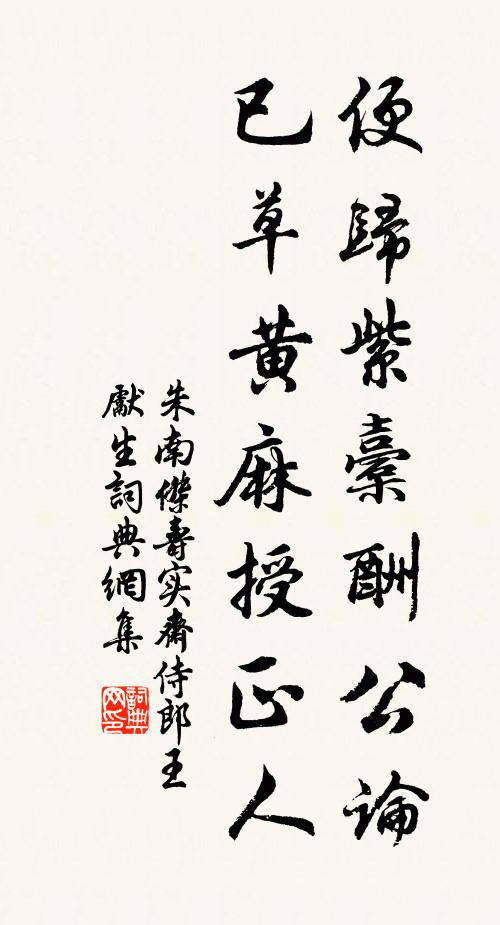 便歸紫橐酬公論
已草黃麻授正人
朱南傑壽实齋侍郎王
獻生詞典網集
詞典网印